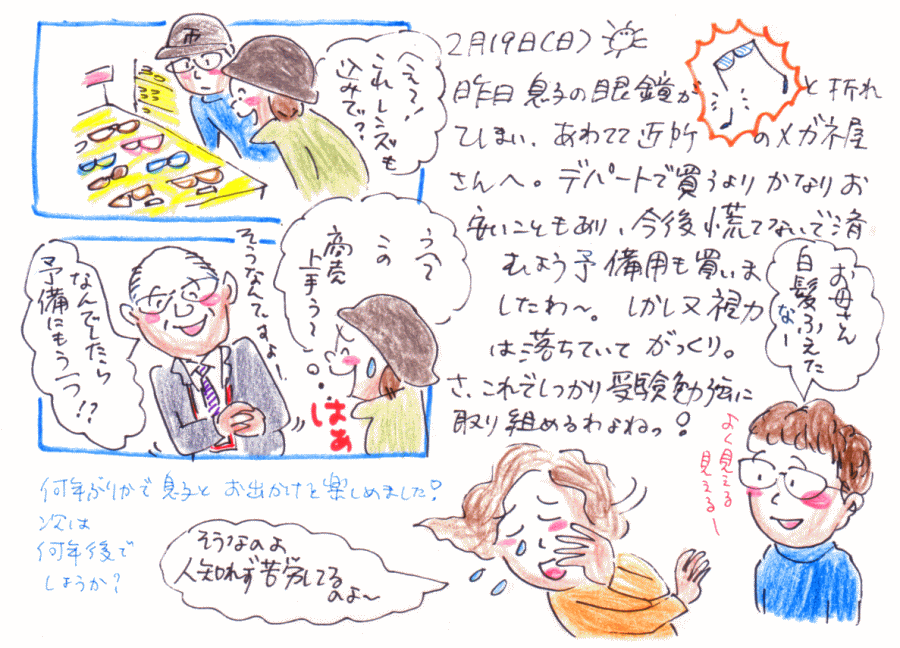 2月19日(日)
昨日息子の眼鏡が と折れ
てしまい、あわてて近所 のメガネ屋
さんへ。デパートで買うよりかなりお
安いこともあり、今後慌てないで済
むよう予備用も買いま
したわ〜。しかし又視力
は落ちていてがっくり。
さ、これでしっかり受験勉強に
取り組めるわよねっ!
えっ!
これレンズも
込みで?
うっ
この
商売
上手う〜
はぁ
そうなんですよ!
なんでしたら
予備にもう一つ!?
何年ぶりかで息子とお出かけを楽しめました!
次は
何年後で
しょうか?
お母さん
白髪ふえた
なー
よく見える
見えるー
そうなのよ
人知れず苦労してる
のよ〜